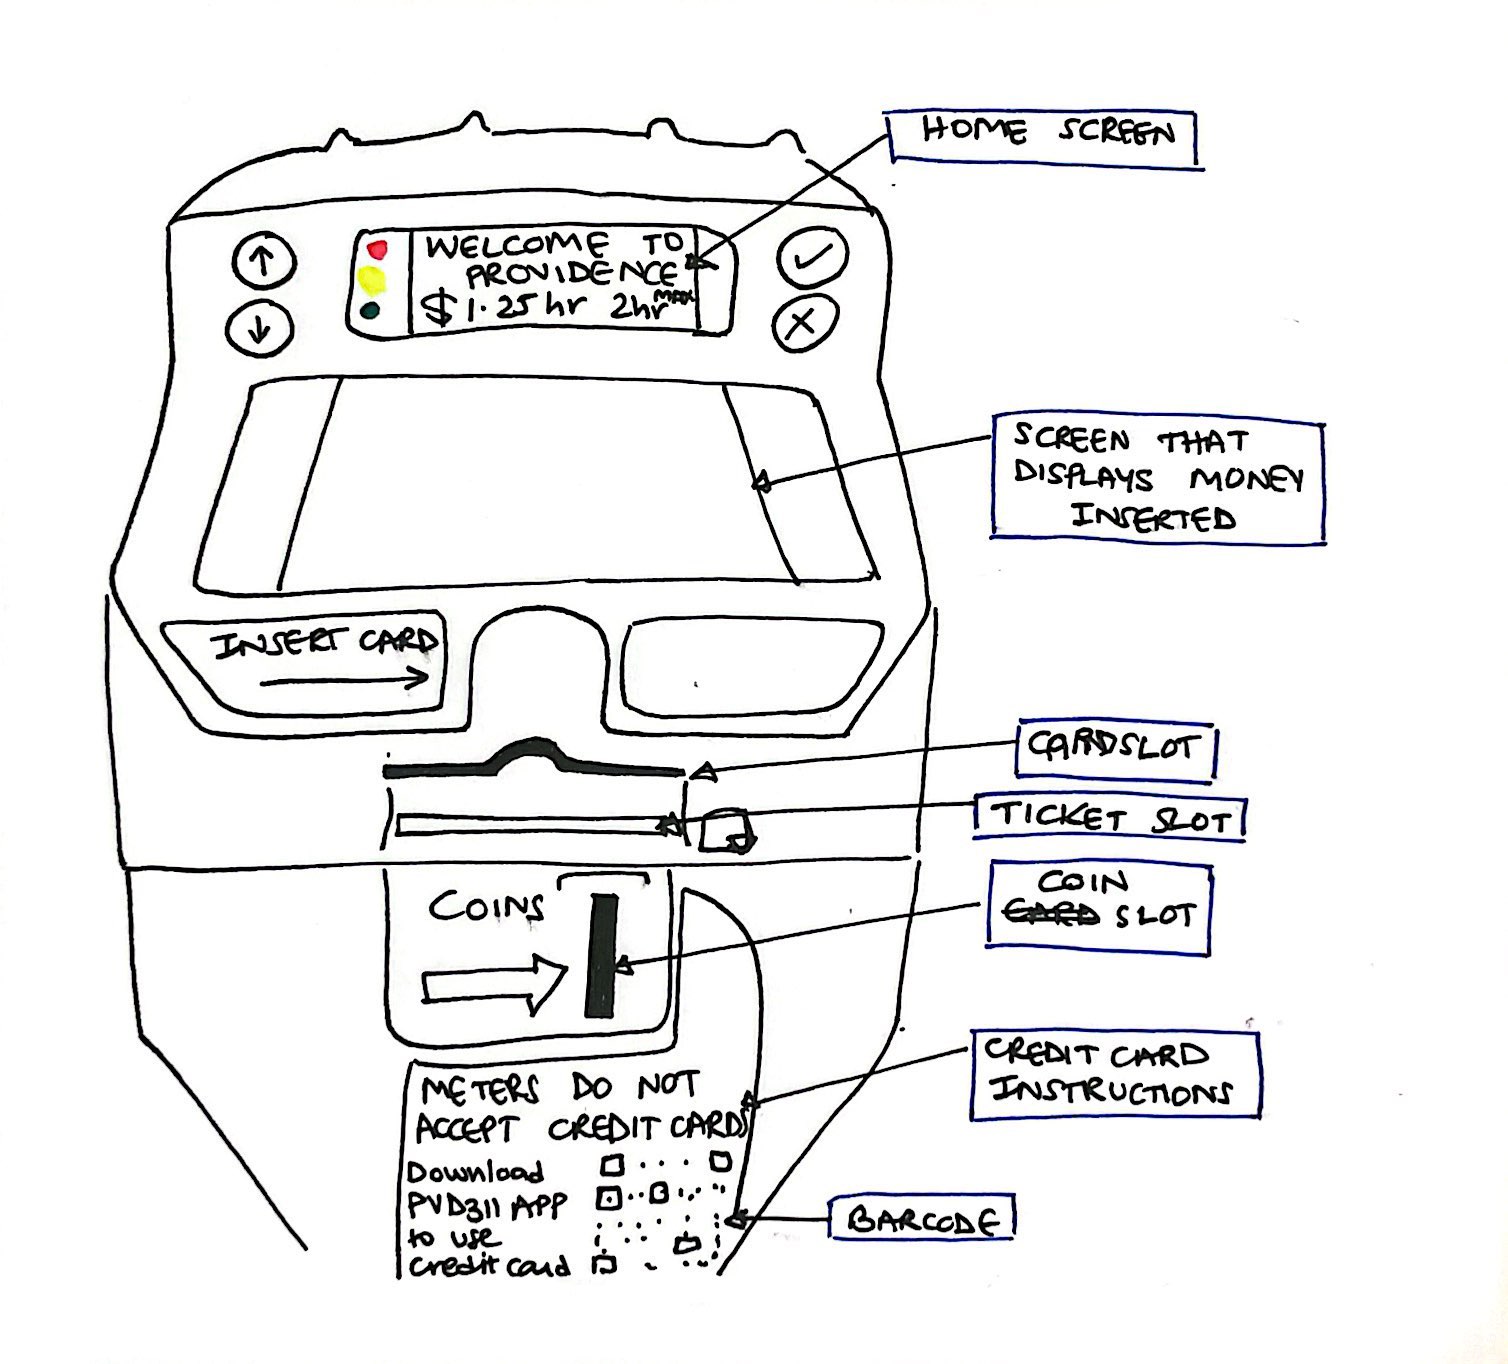 HOME SCREEN
WELCOME TO
PROVIDENCE
$1.25 hr 2hr MAX
SCREEN THAT
DISPLAYS MONEY
INSERTED
INSERT CARD
CARDSLOT
TICKET SLOT
COINS
COIN
CARD SLOT
CREDIT CARD
INSTRUCTIONS
METERS DO NOT
ACCEPT CREDIT CARDS
Download
PVD311 APP
to use
Credit card
BARCODE